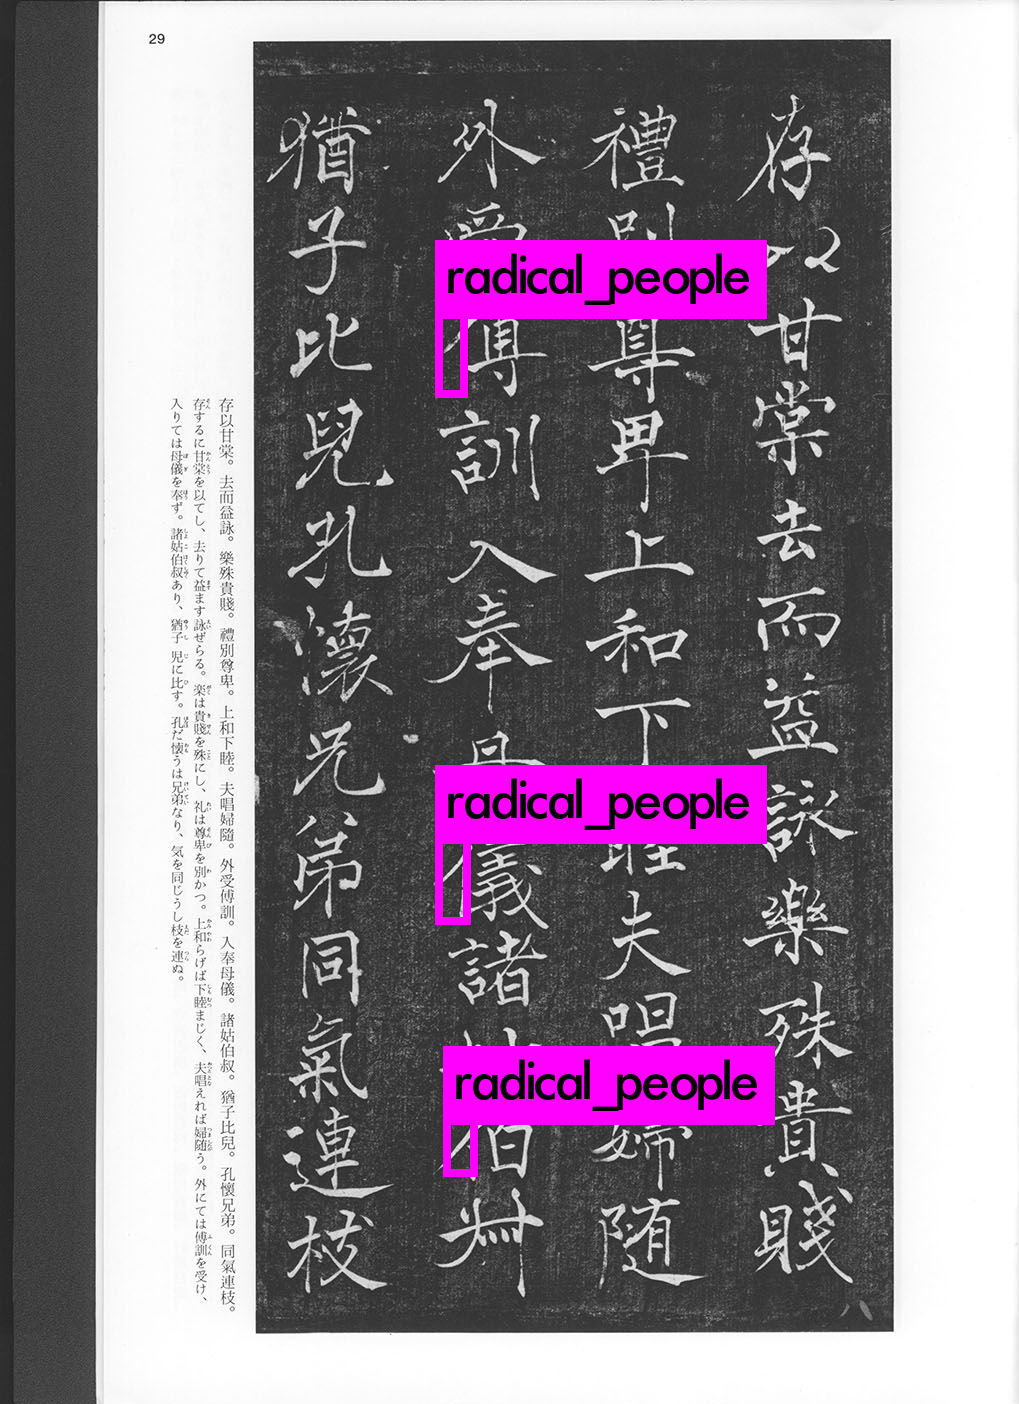 29
存以甘棠去而益詠樂殊貴賤
禮別尊卑上和下睦夫唱婦随
外受傅訓入奉母儀諸姑伯叔
猶子比兒孔懷兄弟同氣連枝
八
radical_people
radical_people
radical_people
存以甘棠。去而益詠。樂殊貴賤。禮別尊卑。上和下睦。夫唱婦隨。外受傅訓。入奉母儀。諸姑伯叔。猶子比兒。孔懷兄弟。同氣連枝。
存するに甘棠を以てし、去りて益ます詠ぜらる。楽は貴賤を殊にし、礼は尊卑を別かつ。上和らげば下睦まじく、夫唱えれば婦随う。外にては傅訓を受け、
入りては母儀を奉ず。諸姑伯叔あり、猶子児に比す。孔だ懐うは兄弟なり、気を同じうし枝を連ぬ。